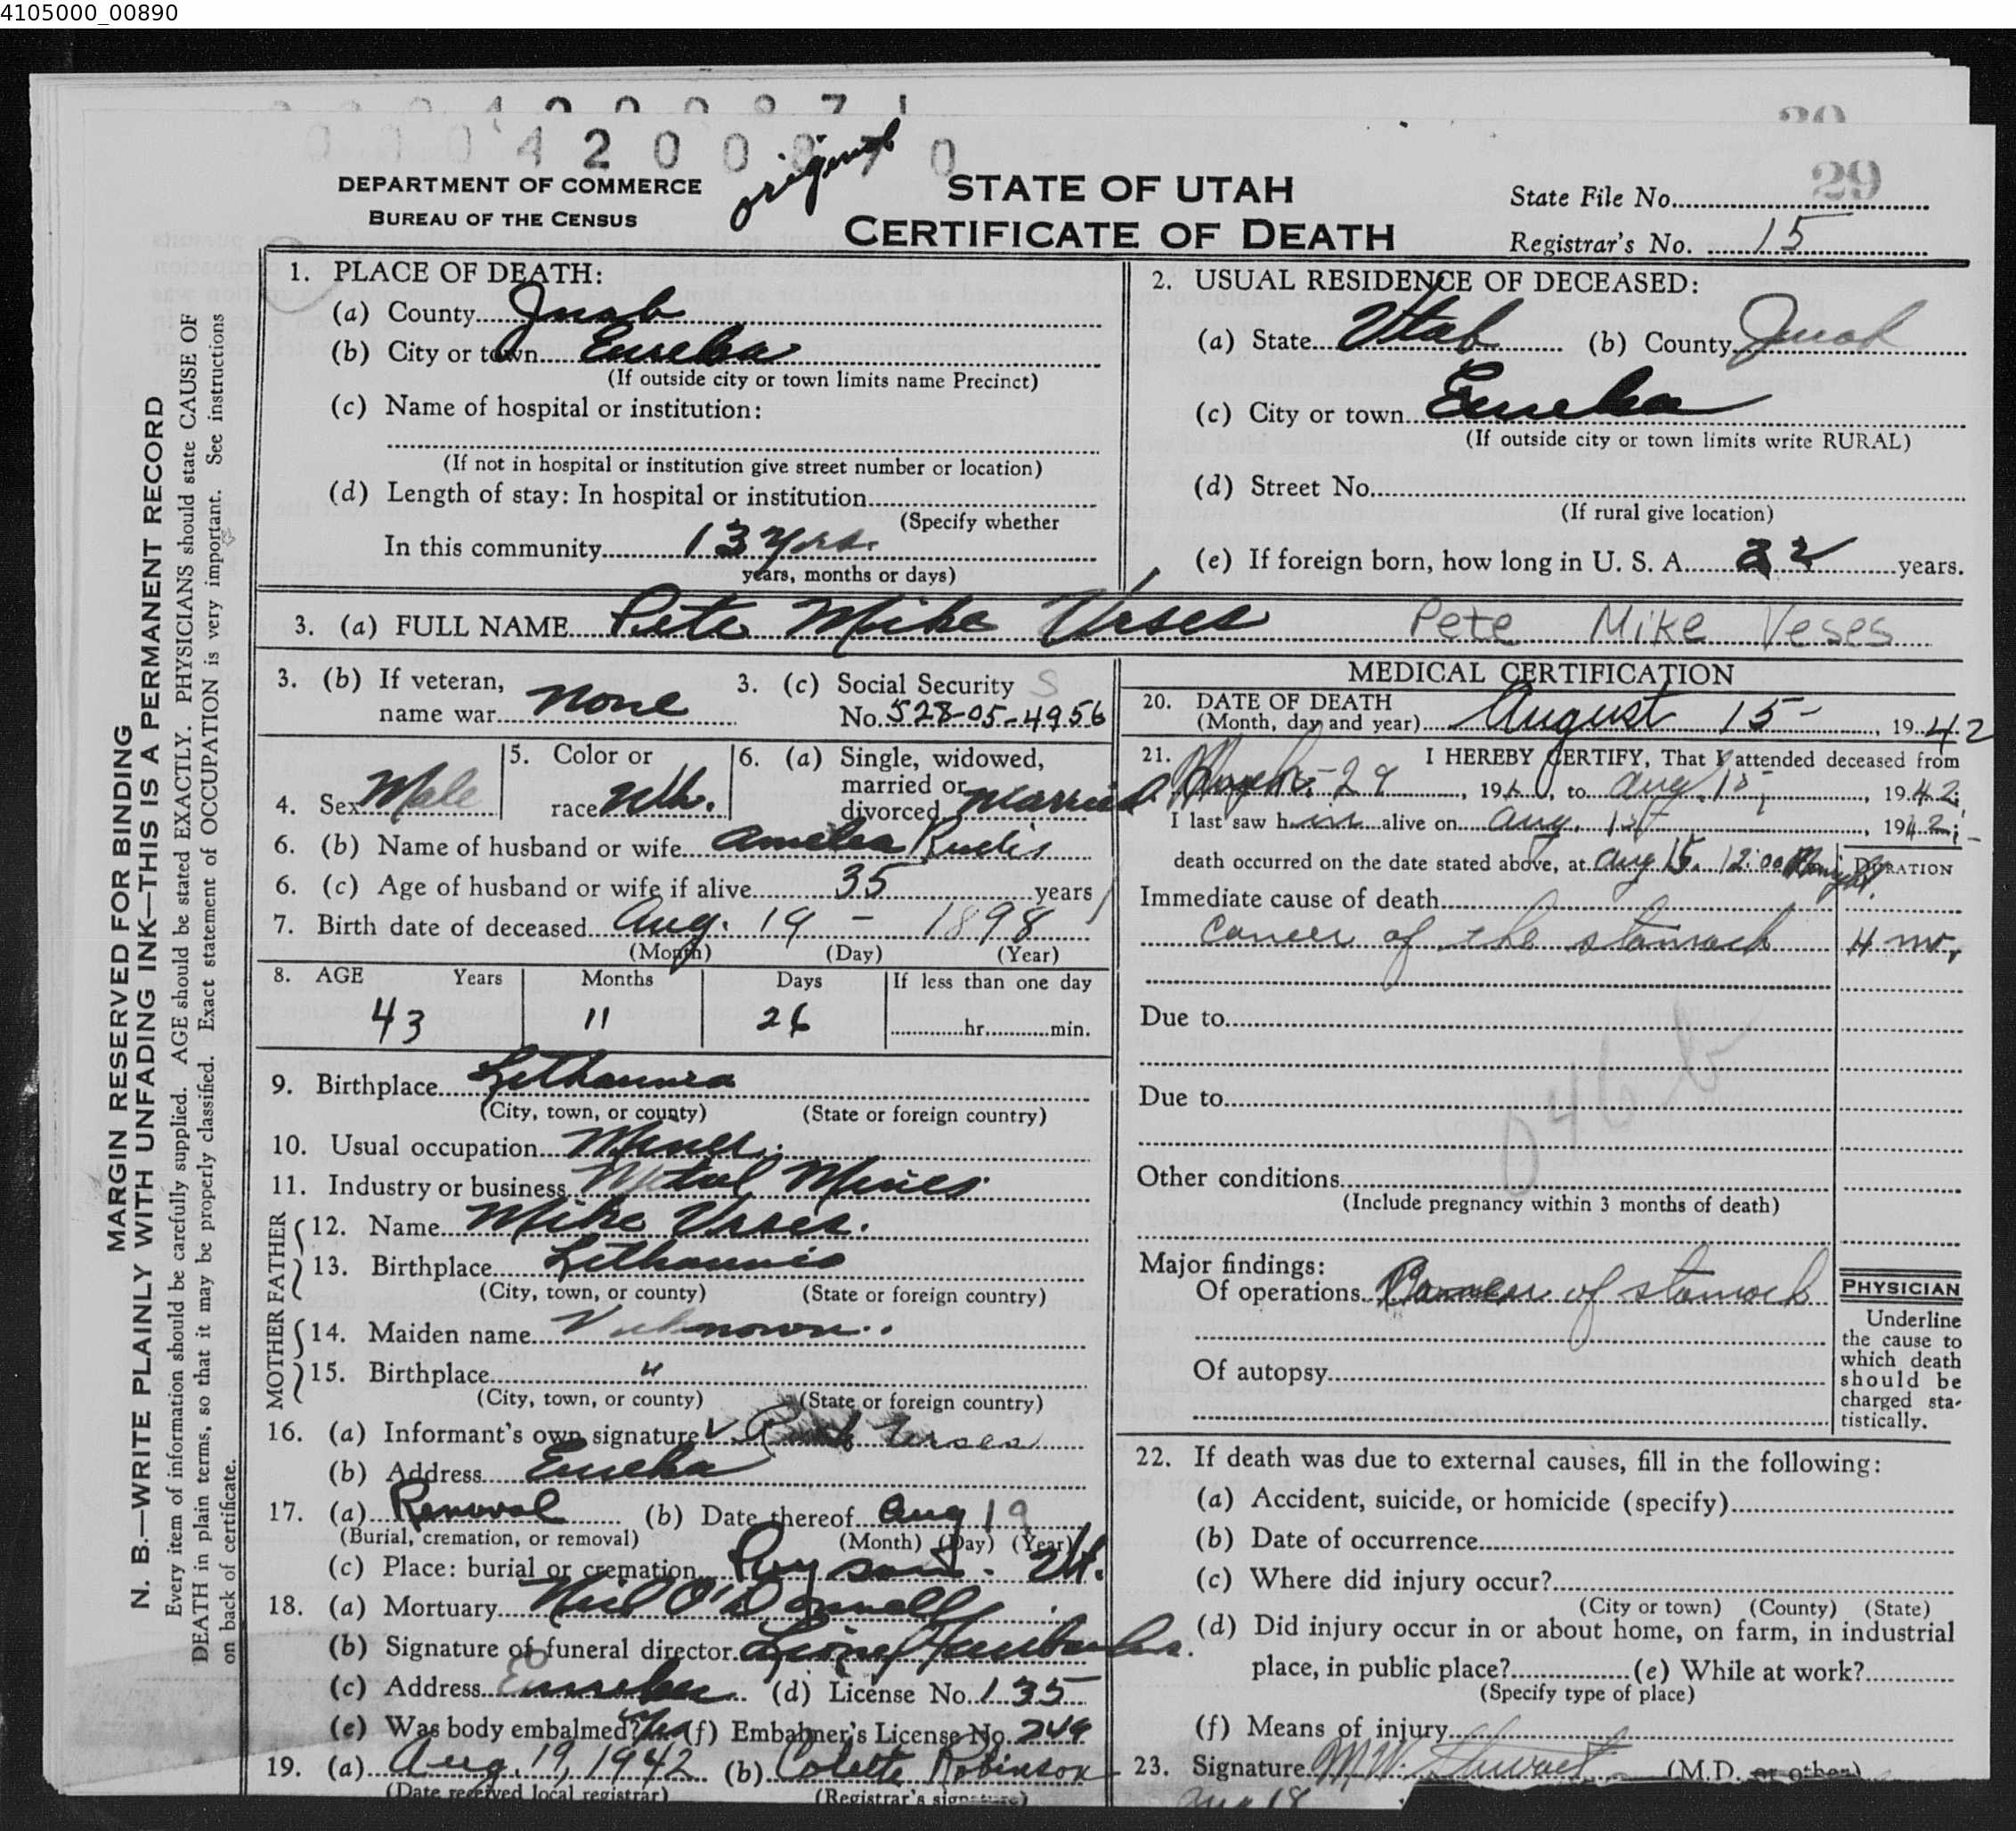 4105000_00890
4 2 0 0 8 7 0
original
29
DEPARTMENT OF COMMERCE
BUREAU OF THE CENSUS
STATE OF UTAH
CERTIFICATE OF DEATH
State File No.
Registrar's No. 15
MARGIN RESERVED FOR BINDING
N. B.—WRITE PLAINLY WITH UNFADING INK—THIS IS A PERMANENT RECORD
Every item of information should be carefully supplied. AGE should be stated EXACTLY. PHYSICIANS should state CAUSE OF
DEATH in plain terms, so that it may be properly classified. Exact statement of OCCUPATION is very important. See instructions
on back of certificate.
1. PLACE OF DEATH:
(a) County Juab
(b) City or town Eureka
(If outside city or town limits name Precinct)
(c) Name of hospital or institution:
(If not in hospital or institution give street number or location)
(d) Length of stay: In hospital or institution
(Specify whether
In this community 13 yrs.
years, months or days)
2. USUAL RESIDENCE OF DECEASED:
(a) State Utah (b) County Juab
(c) City or town Eureka
(If outside city or town limits write RURAL)
(d) Street No.
(If rural give location)
(e) If foreign born, how long in U. S. A. 32 years.
3. (a) FULL NAME Pete Mike Urses Pete Mike Veses
3. (b) If veteran, name war None
3. (c) Social Security S
No. 528-05-4956
4. Sex Male
5. Color or race Wh.
6. (a) Single, widowed, married or divorced Married
6. (b) Name of husband or wife Amelea Rudis
6. (c) Age of husband or wife if alive 35 years
7. Birth date of deceased Aug. 19 - 1898
(Month) (Day) (Year)
8. AGE Years Months Days If less than one day
43 11 26 hr. min.
9. Birthplace Lethaunea
(City, town, or county) (State or foreign country)
10. Usual occupation Miner.
11. Industry or business Metal Mines
FATHER
12. Name Mike Urses.
13. Birthplace Lethaunia
(City, town, or county) (State or foreign country)
MOTHER
14. Maiden name Unknown.
15. Birthplace "
(City, town, or county) (State or foreign country)
16. (a) Informant's own signature Urses
(b) Address Eureka
17. (a) Removal (b) Date thereof Aug 19
(Burial, cremation, or removal) (Month) (Day) (Year)
(c) Place: burial or cremation Payson. Ut.
18. (a) Mortuary Neil O'Donnell
(b) Signature of funeral director
(c) Address Eureka (d) License No. 135
(e) Was body embalmed? Yes (f) Embalmer's License No. 249
19. (a) Aug. 19, 1942 (b) Colette Robinson
(Date received local registrar) (Registrar's signature)
MEDICAL CERTIFICATION
20. DATE OF DEATH
(Month, day and year) August 15 - , 1942
21. I HEREBY CERTIFY, That I attended deceased from
29, 194, to Aug. 15, 1942;
I last saw him alive on Aug. 15, 1942;
death occurred on the date stated above, at Aug 15. 12:00
DURATION
Immediate cause of death
Cancer of the stomach 4 mo.
Due to
Due to
046b
Other conditions
(Include pregnancy within 3 months of death)
Major findings:
Of operations Cancer of stomach
Of autopsy
PHYSICIAN
Underline
the cause to
which death
should be
charged sta-
tistically.
22. If death was due to external causes, fill in the following:
(a) Accident, suicide, or homicide (specify)
(b) Date of occurrence
(c) Where did injury occur?
(City or town) (County) (State)
(d) Did injury occur in or about home, on farm, in industrial
place, in public place? (e) While at work?
(Specify type of place)
(f) Means of injury
23. Signature M.W. Stewart (M.D. or other)
Aug 18